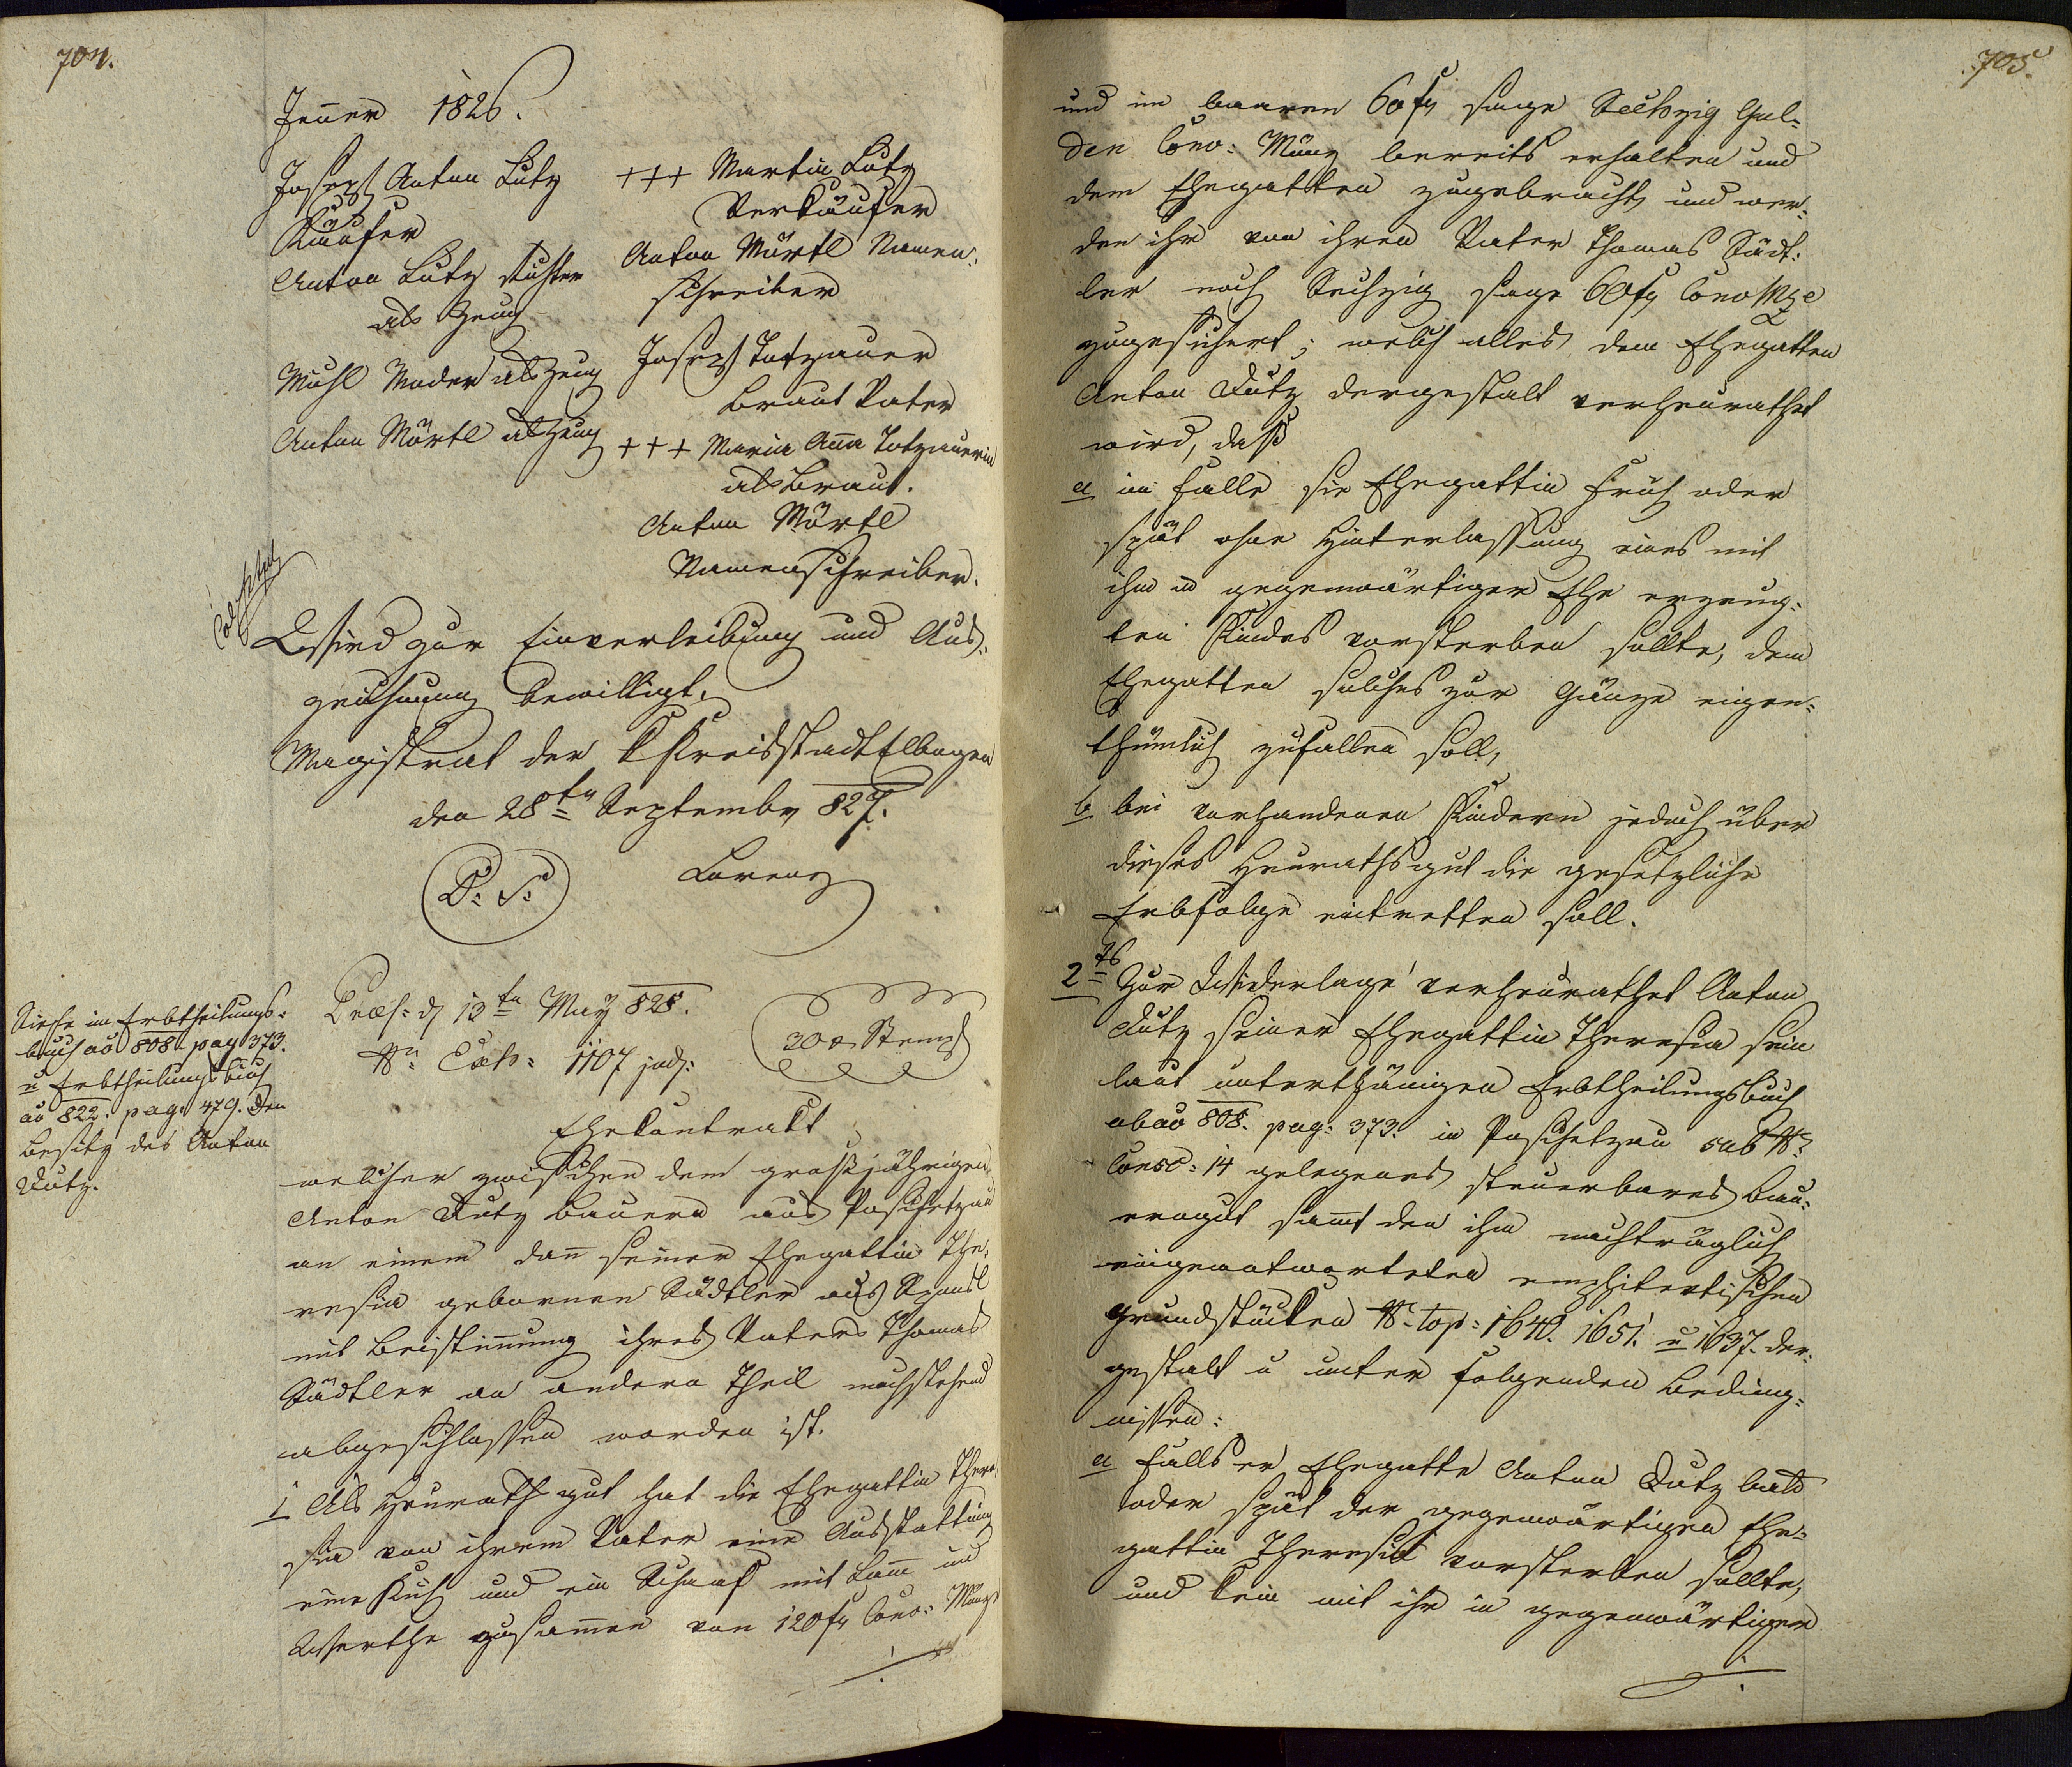 704.
Jenner 1826.
Joseph Anton Lutz
Käufer
Anton Lutz Richter
als Zeug
Michl Moder als Zeug
Anton Mörtl als Zeug
+++ Martin Lutz
Verkäufer
Anton Mörtl Namen-
schreiber
Joseph Totzauer
Braut Vater
+++ Maria Ana Totzauerin
als Braut.
Anton Mörtl
Namensschreiber.
Wird zur Einverleibung und Auf-
zeichnung bewilligt.
Magistrat der K Kreisstadt Elbogen
den 28ten Septembr 827.
L: S: Lorenz
Siehe im Erbtheilungs-
buch ao 808. pag 373.
u Erbtheilungsbuch
ao 822. pag. 479. den
Besitz des Anton
Lutz.
Præs: d 13ten May 828.
Nr: Exh: 1107 jud:
30 x Stempl
Ehekontrakt
welcher zwischen dem großjährigen
Anton Lutz Bauern aus Poschetzau
an einem dan seiner Ehegattin The-
resia gebornen Städtler aus
mit Beistimung ihres Vaters Thomas
Städtler an andern Theil nachstehend
abgeschlossen worden ist.
1 Als Heurathgut hat die Ehegattin There-
sia von ihrem Vater eine Ausstattung
eine Kuh und ein Schaaf mit Lam im
Werthe zusamen von 120 fr Conv: Münz
705.
und im baaren 60 fr sage Sechzig Gul-
den Conv: Münz bereits erhalten und
dem Ehegatten zugebracht, und wer-
den ihr von ihren Vater Thomas Städt-
ler noch Sechzig sage 60 fr Conv Mze
zugesichert; welch alles dem Ehegatten
Anton Lutz dergestalt verheurathet
wird, daß
a im Falle sie Ehegattin früh oder
spät ohne Hinterlassung eines mit
ihm in gegenwärtiger Ehe erzeug-
ten Kindes vorsterben sollte, dem
Ehegatten solches zur Gänze eigen-
thümlich zufallen soll,
b bei vorhandenen Kindern jedoch über
dieses Heurathsgut die gesetzliche
Erbfolge eintretten soll.
2ts Zur Widerlage verheurathet Anton
Lutz seiner Ehegattin Theresia sein
laut unterthänigen Erbtheilungsbuch
ab ao 808. pag: 373. in Poschetzau sub Nr
Consc: 14 gelegenes steuerbares Bau-
erngut samt den ihm nachträglich
eingeantworteten emphiteutischen
Grundstücken Nr. top: 1640. 1651. u 1637. der-
gestalt u unter folgenden Beding-
nissen:
a Falls er Ehegatte Anton Lutz bald
oder spät der gegenwärtigen Ehe-
gattin Theresia vorsterben sollte,
und kein mit ihr in gegenwärtiger